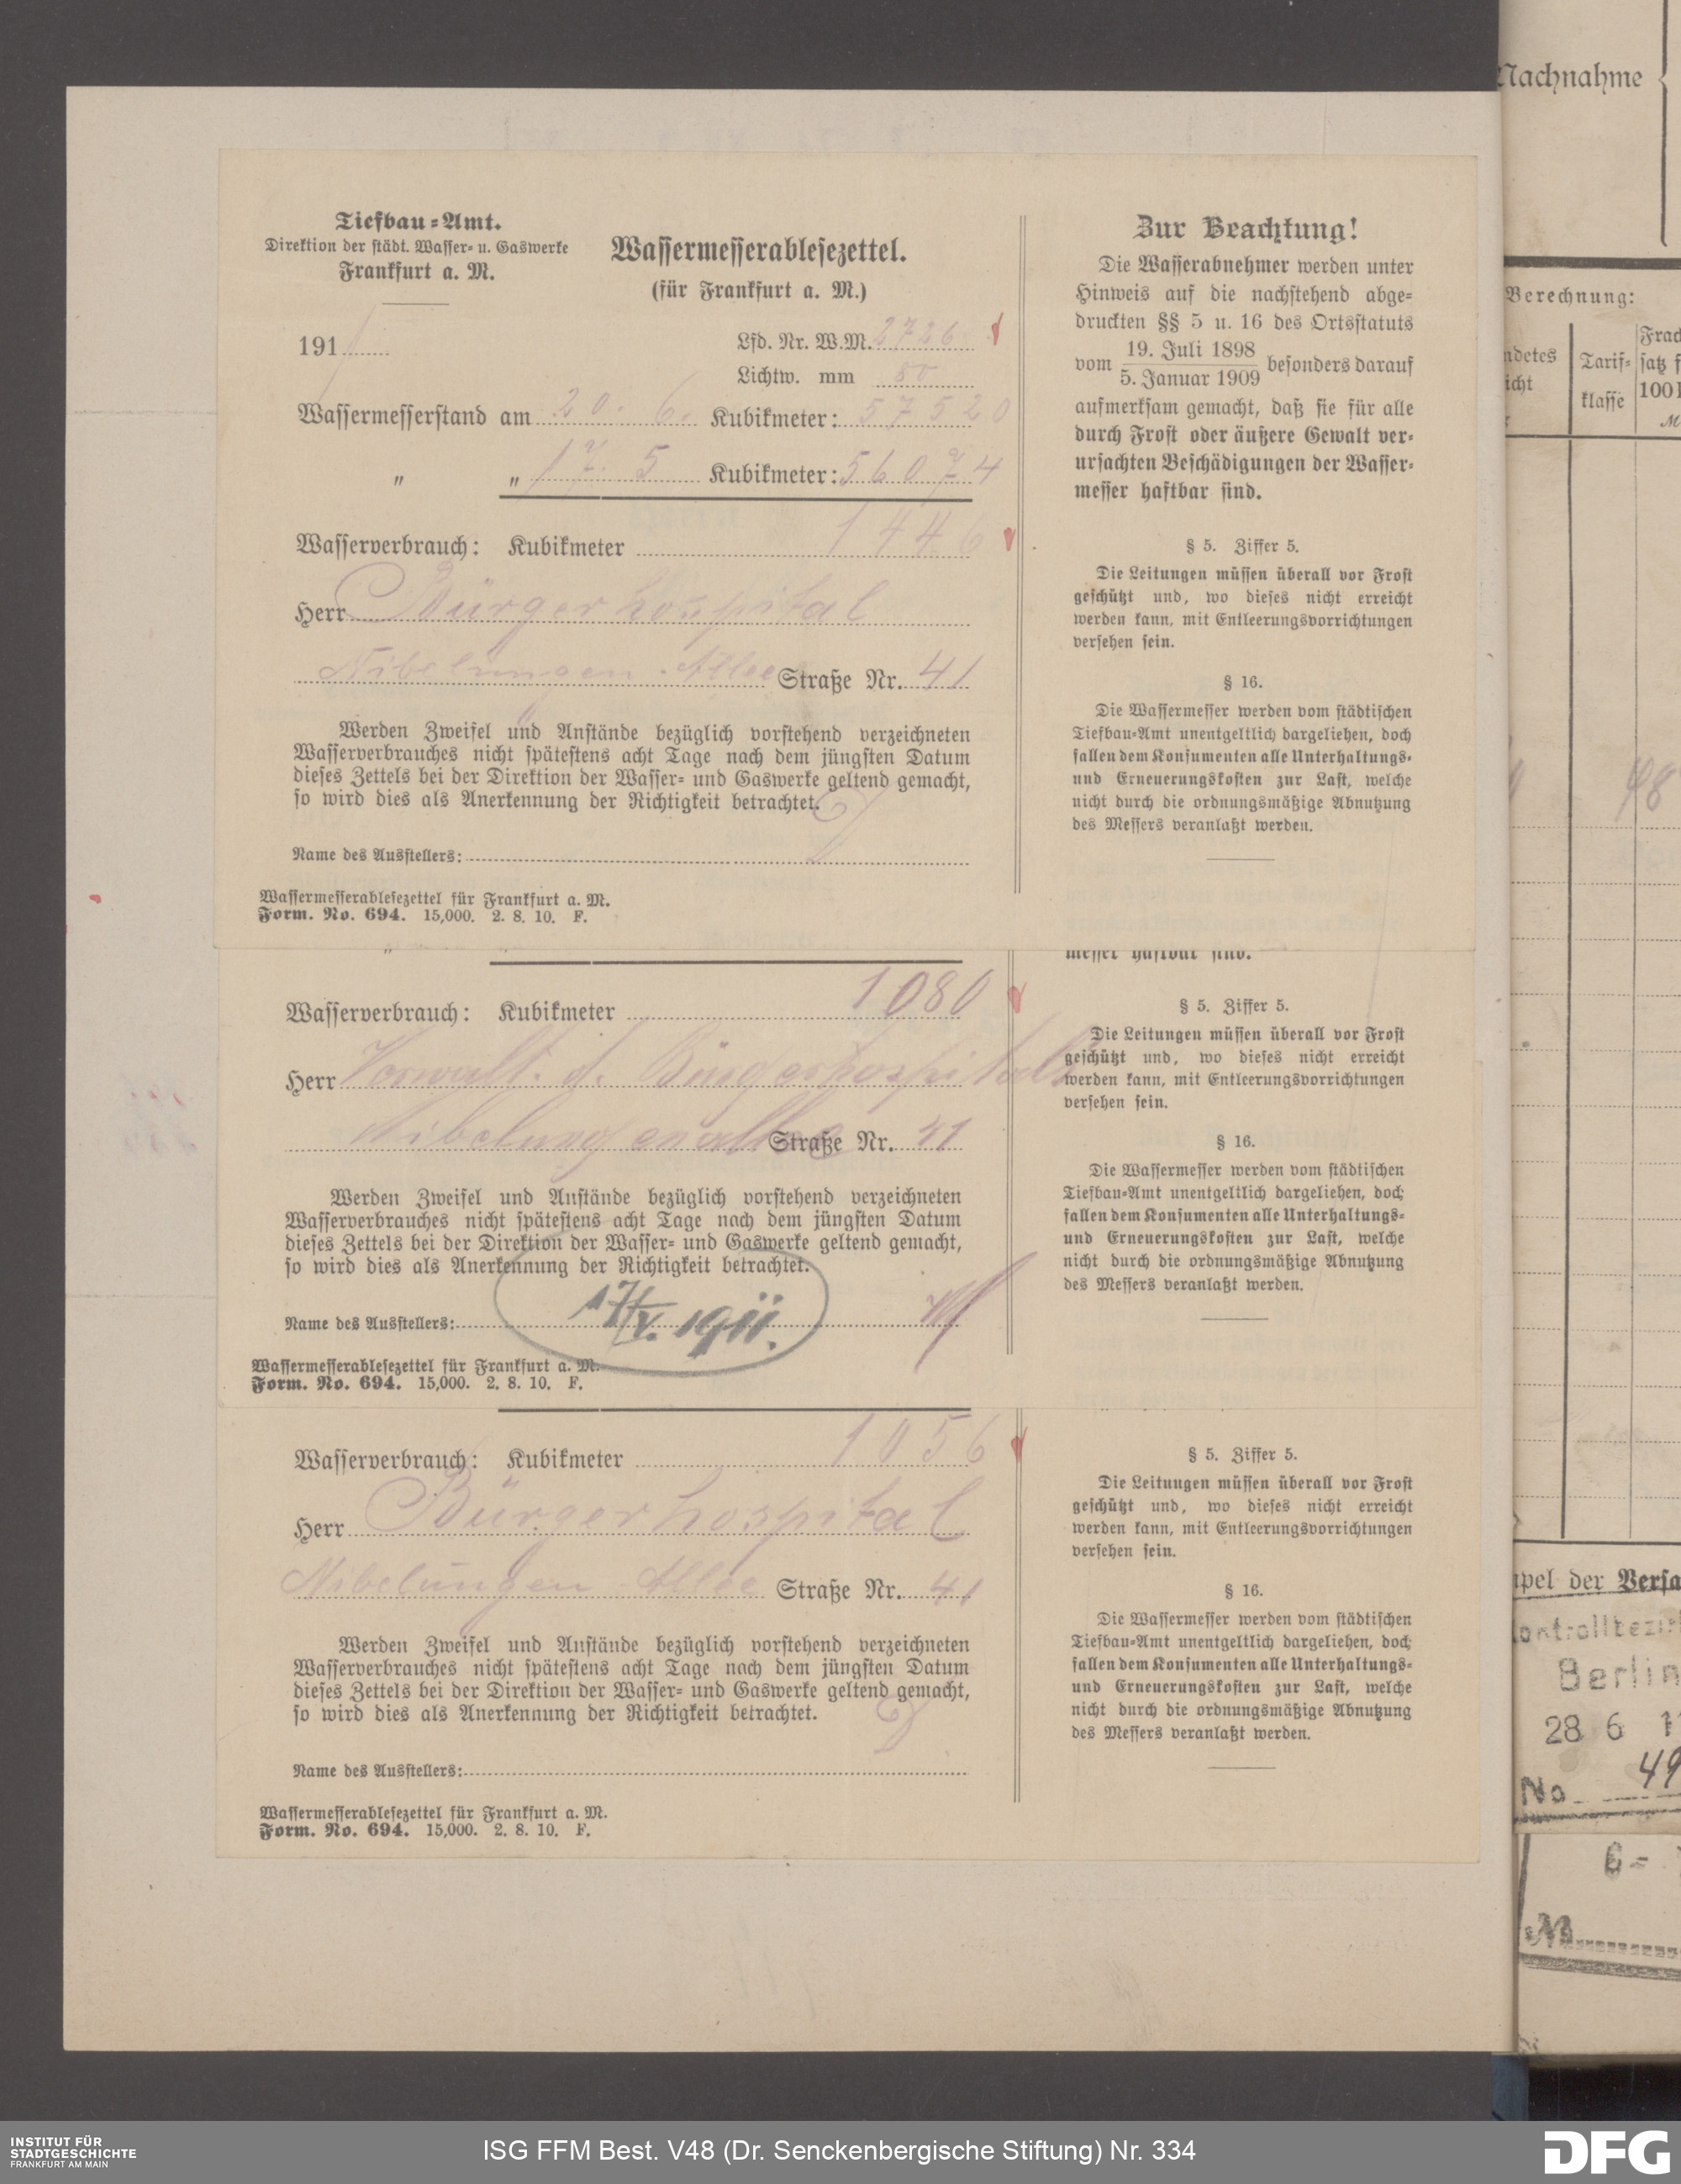 Tiefbau-Amt.
Direktion der städt. Wasser- u. Gaswerke
Frankfurt a. M.
Wassermesserablesezettel.
(für Frankfurt a. M.)
1911
Lfd. Nr. W.M. 2726
Lichtw. mm 80
Wassermesserstand am 20. 6. Kubikmeter: 57520
" " 17. 5 Kubikmeter: 56074
Wasserverbrauch: Kubikmeter 1446
Herr Bürgerhospital
Nibelungen-Allee Straße Nr. 41
Werden Zweifel und Anstände bezüglich vorstehend verzeichneten
Wasserverbrauches nicht spätestens acht Tage nach dem jüngsten Datum
dieses Zettels bei der Direktion der Wasser- und Gaswerke geltend gemacht,
so wird dies als Anerkennung der Richtigkeit betrachtet.
Name des Ausstellers:
Wassermesserablesezettel für Frankfurt a. M.
Form. No. 694. 15,000. 2. 8. 10. F.
Zur Beachtung!
Die Wasserabnehmer werden unter
Hinweis auf die nachstehend abge-
druckten §§ 5 u. 16 des Ortsstatuts
vom 19. Juli 1898 / 5. Januar 1909 besonders darauf
aufmerksam gemacht, daß sie für alle
durch Frost oder äußere Gewalt ver-
ursachten Beschädigungen der Wasser-
messer haftbar sind.
§ 5. Ziffer 5.
Die Leitungen müssen überall vor Frost
geschützt und, wo dieses nicht erreicht
werden kann, mit Entleerungsvorrichtungen
versehen sein.
§ 16.
Die Wassermesser werden vom städtischen
Tiefbau-Amt unentgeltlich dargeliehen, doch
fallen dem Konsumenten alle Unterhaltungs-
und Erneuerungskosten zur Last, welche
nicht durch die ordnungsmäßige Abnutzung
des Messers veranlaßt werden.
Wasserverbrauch: Kubikmeter 1080
Herr Verwalt. d. Bürgerhospitals
Nibelungenallee Straße Nr. 41
Werden Zweifel und Anstände bezüglich vorstehend verzeichneten
Wasserverbrauches nicht spätestens acht Tage nach dem jüngsten Datum
dieses Zettels bei der Direktion der Wasser- und Gaswerke geltend gemacht,
so wird dies als Anerkennung der Richtigkeit betrachtet.
17/V. 1911.
Name des Ausstellers:
Wassermesserablesezettel für Frankfurt a. M.
Form. No. 694. 15,000. 2. 8. 10. F.
messer haftbar sind.
§ 5. Ziffer 5.
Die Leitungen müssen überall vor Frost
geschützt und, wo dieses nicht erreicht
werden kann, mit Entleerungsvorrichtungen
versehen sein.
§ 16.
Die Wassermesser werden vom städtischen
Tiefbau-Amt unentgeltlich dargeliehen, doch
fallen dem Konsumenten alle Unterhaltungs-
und Erneuerungskosten zur Last, welche
nicht durch die ordnungsmäßige Abnutzung
des Messers veranlaßt werden.
Wasserverbrauch: Kubikmeter 1056
Herr Bürgerhospital
Nibelungen-Allee Straße Nr. 41
Werden Zweifel und Anstände bezüglich vorstehend verzeichneten
Wasserverbrauches nicht spätestens acht Tage nach dem jüngsten Datum
dieses Zettels bei der Direktion der Wasser- und Gaswerke geltend gemacht,
so wird dies als Anerkennung der Richtigkeit betrachtet.
Name des Ausstellers:
Wassermesserablesezettel für Frankfurt a. M.
Form. No. 694. 15,000. 2. 8. 10. F.
§ 5. Ziffer 5.
Die Leitungen müssen überall vor Frost
geschützt und, wo dieses nicht erreicht
werden kann, mit Entleerungsvorrichtungen
versehen sein.
§ 16.
Die Wassermesser werden vom städtischen
Tiefbau-Amt unentgeltlich dargeliehen, doch
fallen dem Konsumenten alle Unterhaltungs-
und Erneuerungskosten zur Last, welche
nicht durch die ordnungsmäßige Abnutzung
des Messers veranlaßt werden.
Nachnahme
Berechnung:
ndetes
icht
Tarif-
klasse
Frac
satz f
100
M
98
pel der Versa
ontrollbezir
Berlin
28 6 1
No 49
6 =
M
INSTITUT FÜR
STADTGESCHICHTE
FRANKFURT AM MAIN
ISG FFM Best. V48 (Dr. Senckenbergische Stiftung) Nr. 334
DFG